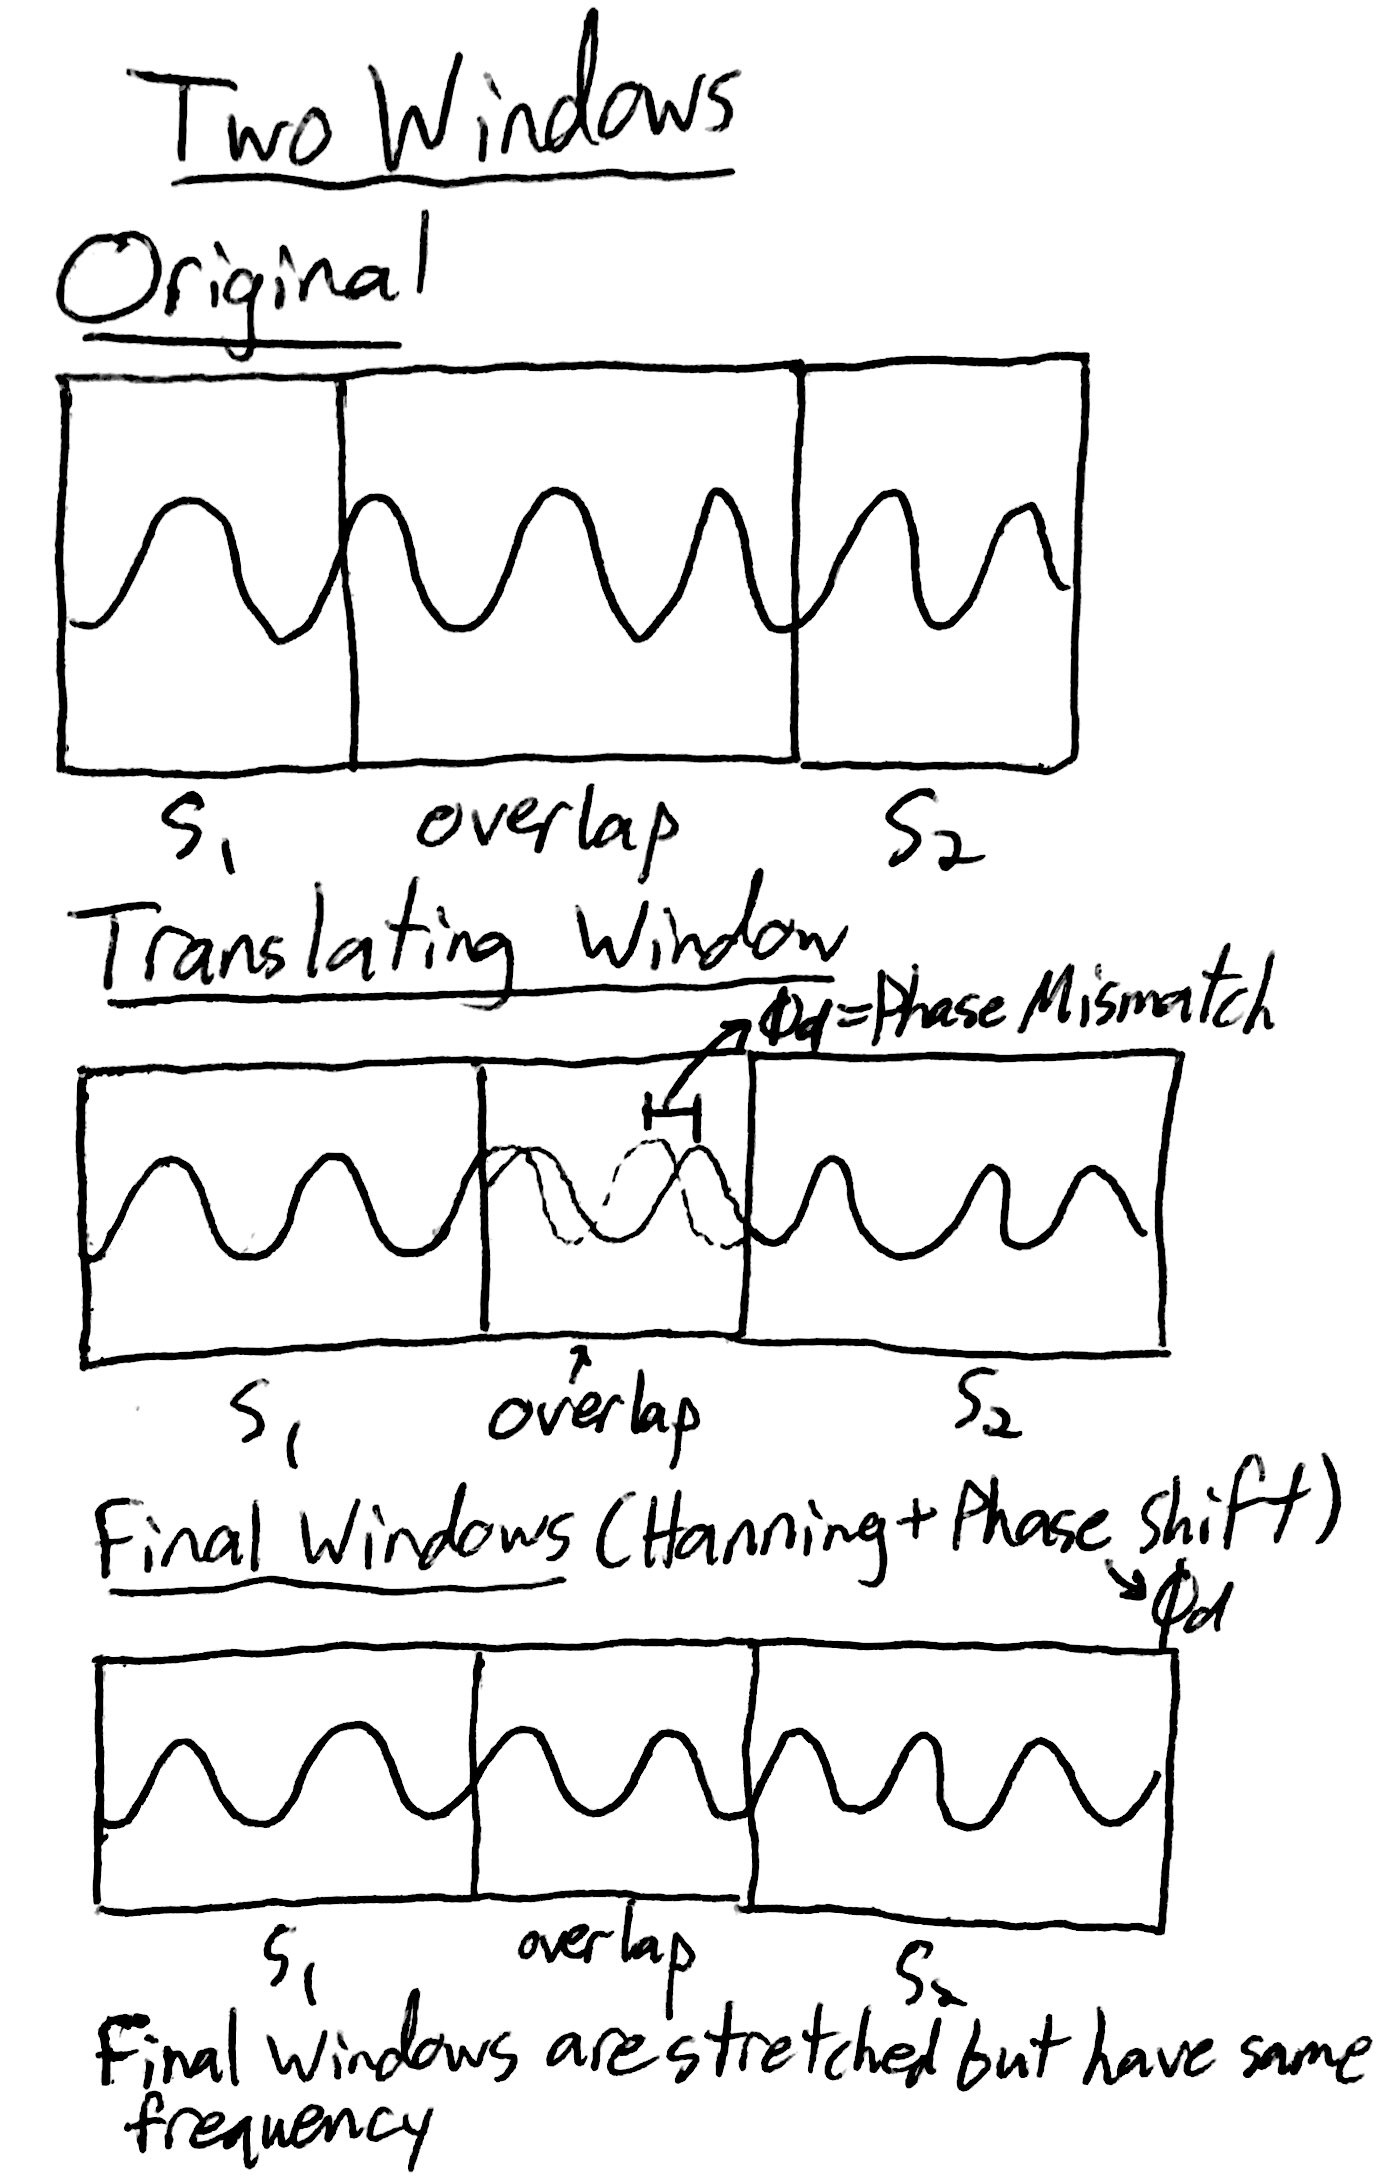 Two Windows
Original
S₁ overlap S₂
Translating Window
Φd = Phase Mismatch
S₁ overlap S₂
Final Windows (Hanning + Phase shift)
Φd
S₁ overlap S₂
Final windows are stretched but have same
frequency